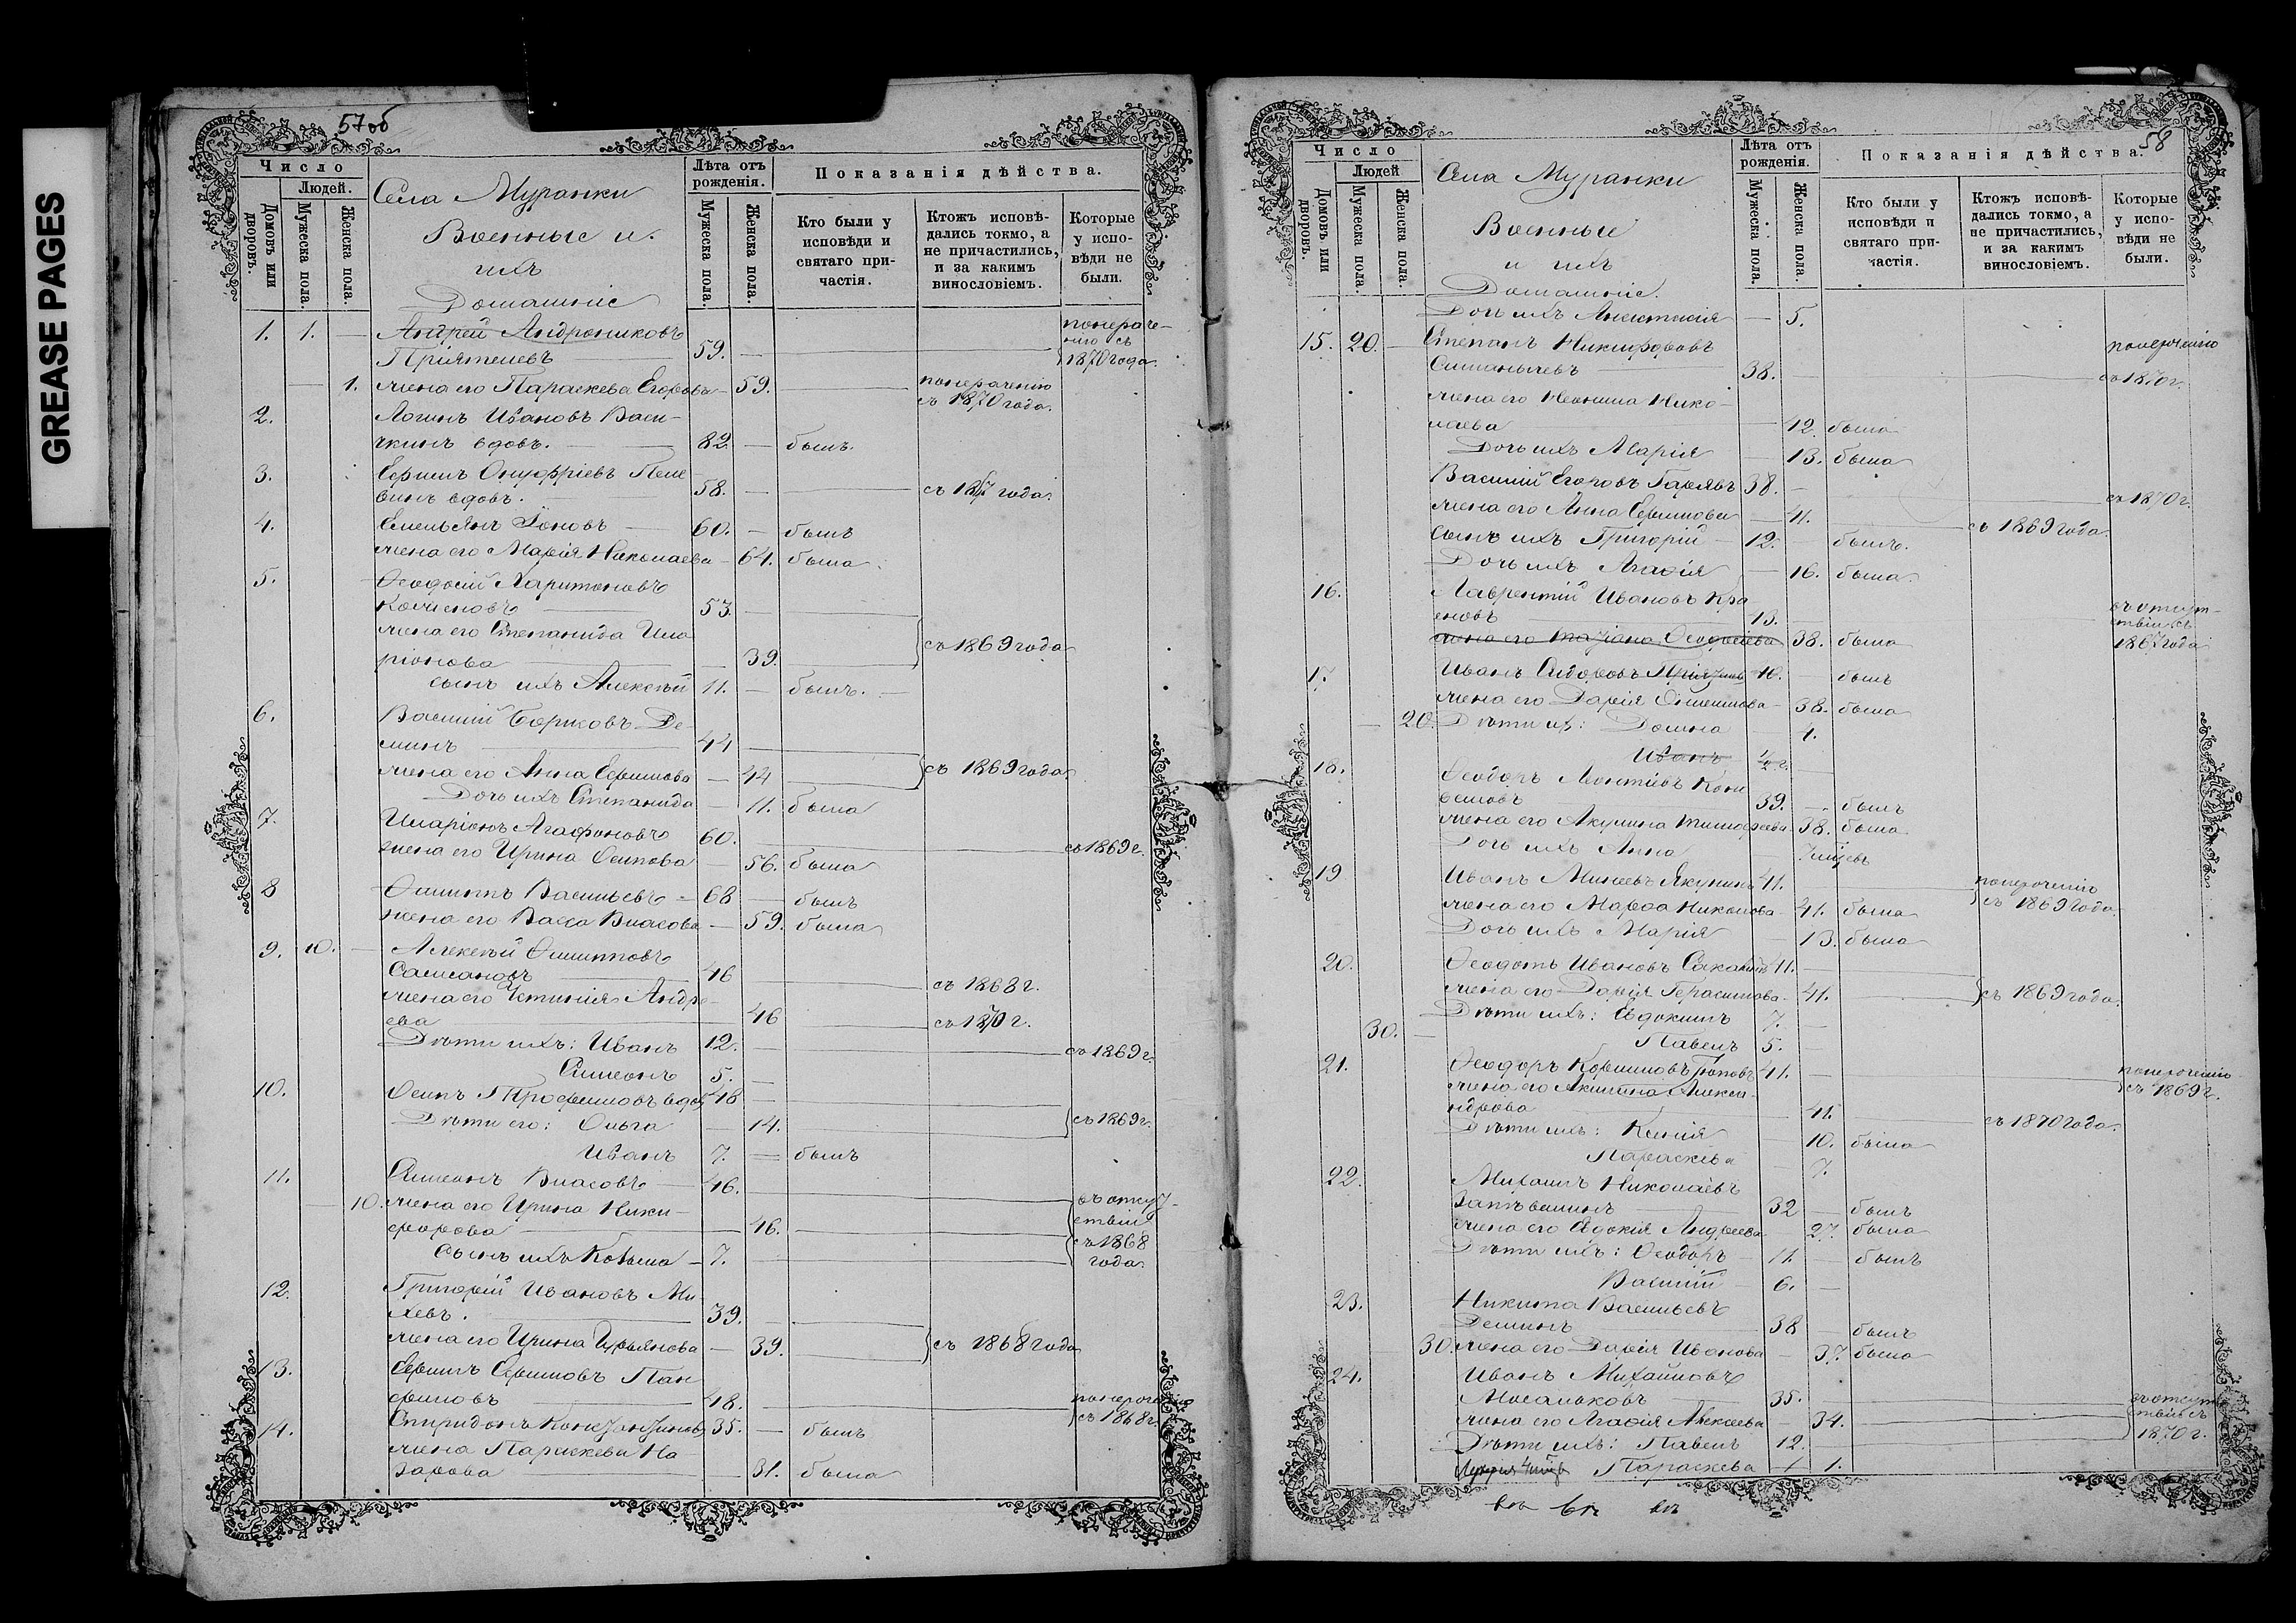 GREASE PAGES
57об
Число
Людей.
Домовъ или дворовъ.
Мужеска пола.
Женска пола.
Села Муранки
Военные и
ихъ
Домашніе
Лѣта отъ рожденія.
Мужеска пола.
Женска пола.
Показанія дѣйства.
Кто были у исповѣди и святаго причастія.
Ктожъ исповѣдались токмо, а не причастились, и за какимъ винословіемъ.
Которые у исповѣди не были.
1. 1. — Андрей Андрониковъ
Пріятелевъ 59. — 1870 года.
1. жена его Параскева Егорова — 59.
съ 1870 года.
2. Логинъ Ивановъ Васи-
чкинъ вдовъ. 82. — былъ.
3. Ефимъ Онуфріевъ
вдовъ. 58. —
4. Емельянъ Іоновъ 60. — былъ
жена его Марія Николаева — 64. была
5. Ѳеодосій Харитоновъ
53. —
жена его Степанида Ила
ріонова — 39. съ 1869 года
сынъ ихъ Алексѣй 11. — былъ.
6. Василій Борисовъ Де-
минъ 44
жена его Анна Ефимова — 44 съ 1869 года
Дочь ихъ Степанида — 11. была
7. Иларіонъ Агафоновъ 60. съ 1869 г.
жена его Ирина Осипова — 56. была
8 Филиппъ Васильевъ — 68 — былъ
жена его Васса Власова — 59. была
9. 10. — Алексѣй Филипповъ
46 съ 1868 г.
жена его Устинія Андре-
ева 46 съ 1870 г.
Дѣти ихъ: Иванъ 12. — съ 1869 г.
Симеонъ 5. —
10. Осипъ Трофимовъ вдов 48 —
Дѣти его: Ольга — 14. съ 1869 г.
Иванъ 7. — былъ
11. Симеонъ Власовъ 46.
— 10. жена его Ирина Ники-
форова 46. съ 1868
Сынъ ихъ Козьма — 7. года.
12. Григорій Ивановъ Ми-
хевъ. 39.
жена его Ирина — 39. съ 1868 года
13. Ефимъ Ефимовъ Пан
филовъ 48. съ 1868 г.
14. Спиридонъ Константиновъ 35. — былъ
жена Параскева На
зарова 31. была
58
Число
Людей
Домовъ или дворовъ.
Мужеска пола.
Женска пола.
Села Муранки
Военные
и ихъ
Домашніе.
Лѣта отъ рожденія.
Мужеска пола
Женска пола.
Показанія дѣйства.
Кто были у исповѣди и святаго причастія.
Ктожъ исповѣдались токмо, а не причастились, и за какимъ винословіемъ.
Которые у исповѣди не были.
Дочь ихъ Анастасія — 5.
15. 20. — Степанъ Никифоровъ
38. — съ 1870 г.
жена его Неонила Нико-
лаева 42. была
Дочь ихъ Марія — 13. была
Василій Егоровъ 38. — съ 1870 г.
жена его Анна Ефимова — 41. съ 1869 года.
Сынъ ихъ Григорій — 12. — былъ.
Дочь ихъ Агафія — 16. была.
16. Лаврентій Ивановъ Кра
43.
жена его Татіана Ѳеодосѣева 38. была 1867 года
17. Иванъ Сидоровъ 40. — былъ
жена его Дарія — 38. была
— 20. Дѣти ихъ: Домна — 4.
Иванъ
18. Ѳеодоръ Леонтіевъ
39. — былъ
жена его Акулина Тимофеева 38. была
Дочь ихъ Анна
19 Иванъ Минеевъ Якунинъ 41. —
съ 1869 года
жена его Марѳа — 41. была
Дочь ихъ Марія — 13. была
20. Ѳеодотъ Ивановъ 41. —
жена его Дарія Герасимова — 41. съ 1869 года.
Дѣти ихъ: Евдокимъ 7. —
30. — Павелъ 5. —
21. Ѳеодоръ 41. — съ 1869 г.
жена его Акилина Алекса-
ндрова 41. съ 1870 года.
Дѣти ихъ: Ксенія — 10. была
Параскева 7.
22. Михаилъ Николаевъ
32 — былъ
жена его Евдокія Андреева 27. была
Дѣти ихъ: Ѳеодоръ — 11. — былъ
Василій — 6. —
23. Никита Васильевъ
Деминъ 38 — былъ
30. жена его Дарія Иванова — 37. была
24. Иванъ Михайловъ
Мосальковъ 35.
жена его Агафія Алексѣева — 34.
Дѣти ихъ: Павелъ 12. 1870 г.
Параскева 1.